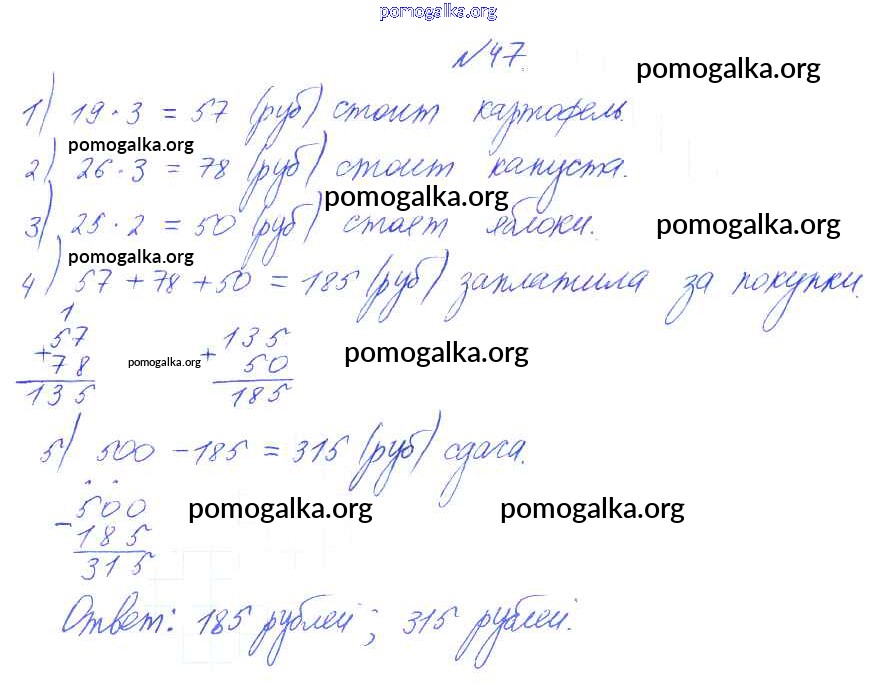 pomogalka.org
№47.
pomogalka.org
1) 19·3 = 57 (руб) стоит картофель.
pomogalka.org
2) 26·3 = 78 (руб) стоит капуста.
pomogalka.org
3) 25·2 = 50 (руб) стоят яблоки.
pomogalka.org
pomogalka.org
4) 57+78+50 = 185 (руб) заплатила за покупки.
1
57
+
78
135
pomogalka.org
135
+
50
185
pomogalka.org
5) 500-185 = 315 (руб) сдача.
. .
500
-
185
315
pomogalka.org
pomogalka.org
Ответ: 185 рублей; 315 рублей.